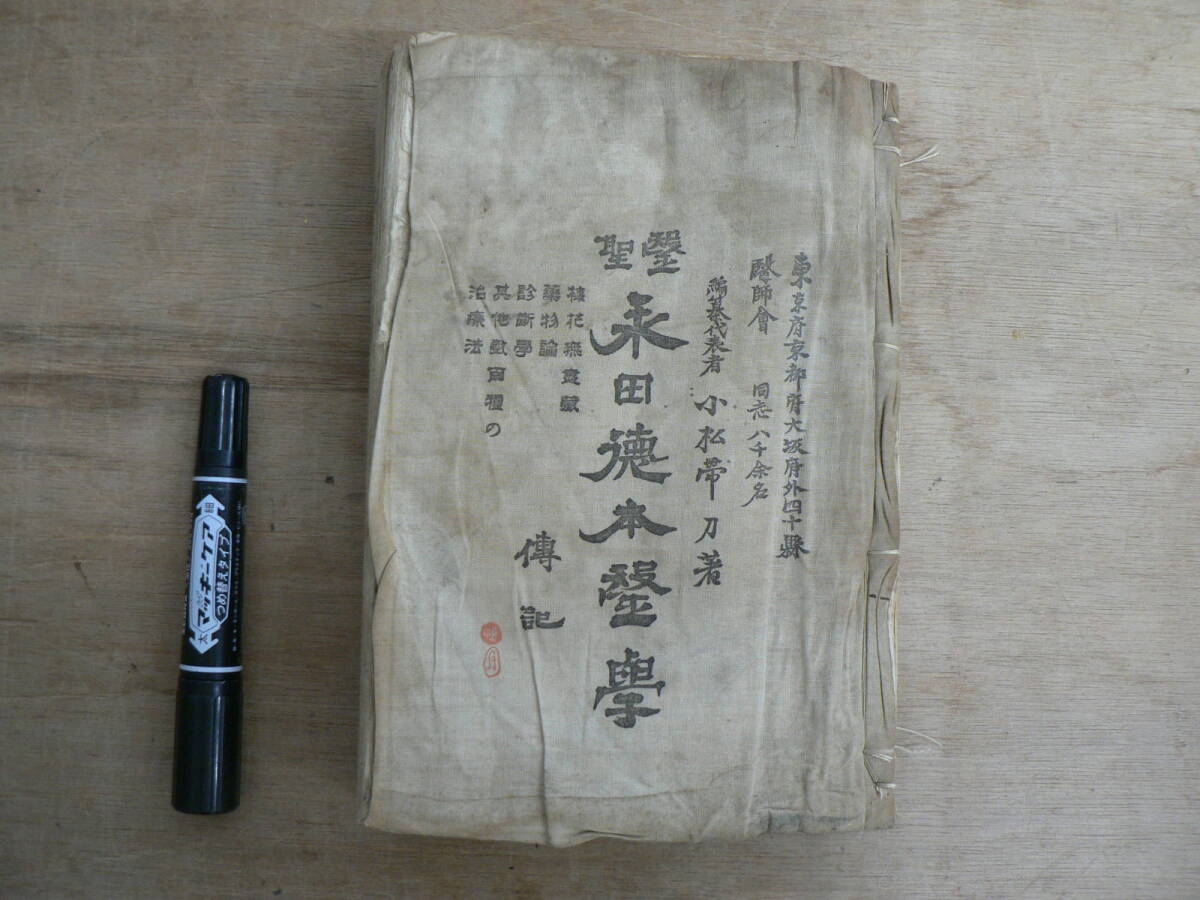 東京府京都府大坂府外四十縣
醫師會 同志八千余名
編纂代表者 小松帶刀著
醫聖
永田德本醫學
傳記
梅花無盡藏
藥物論
診斷學
其他數百種の
治療法
細
マッキーケア
つめ替えタイプ
太